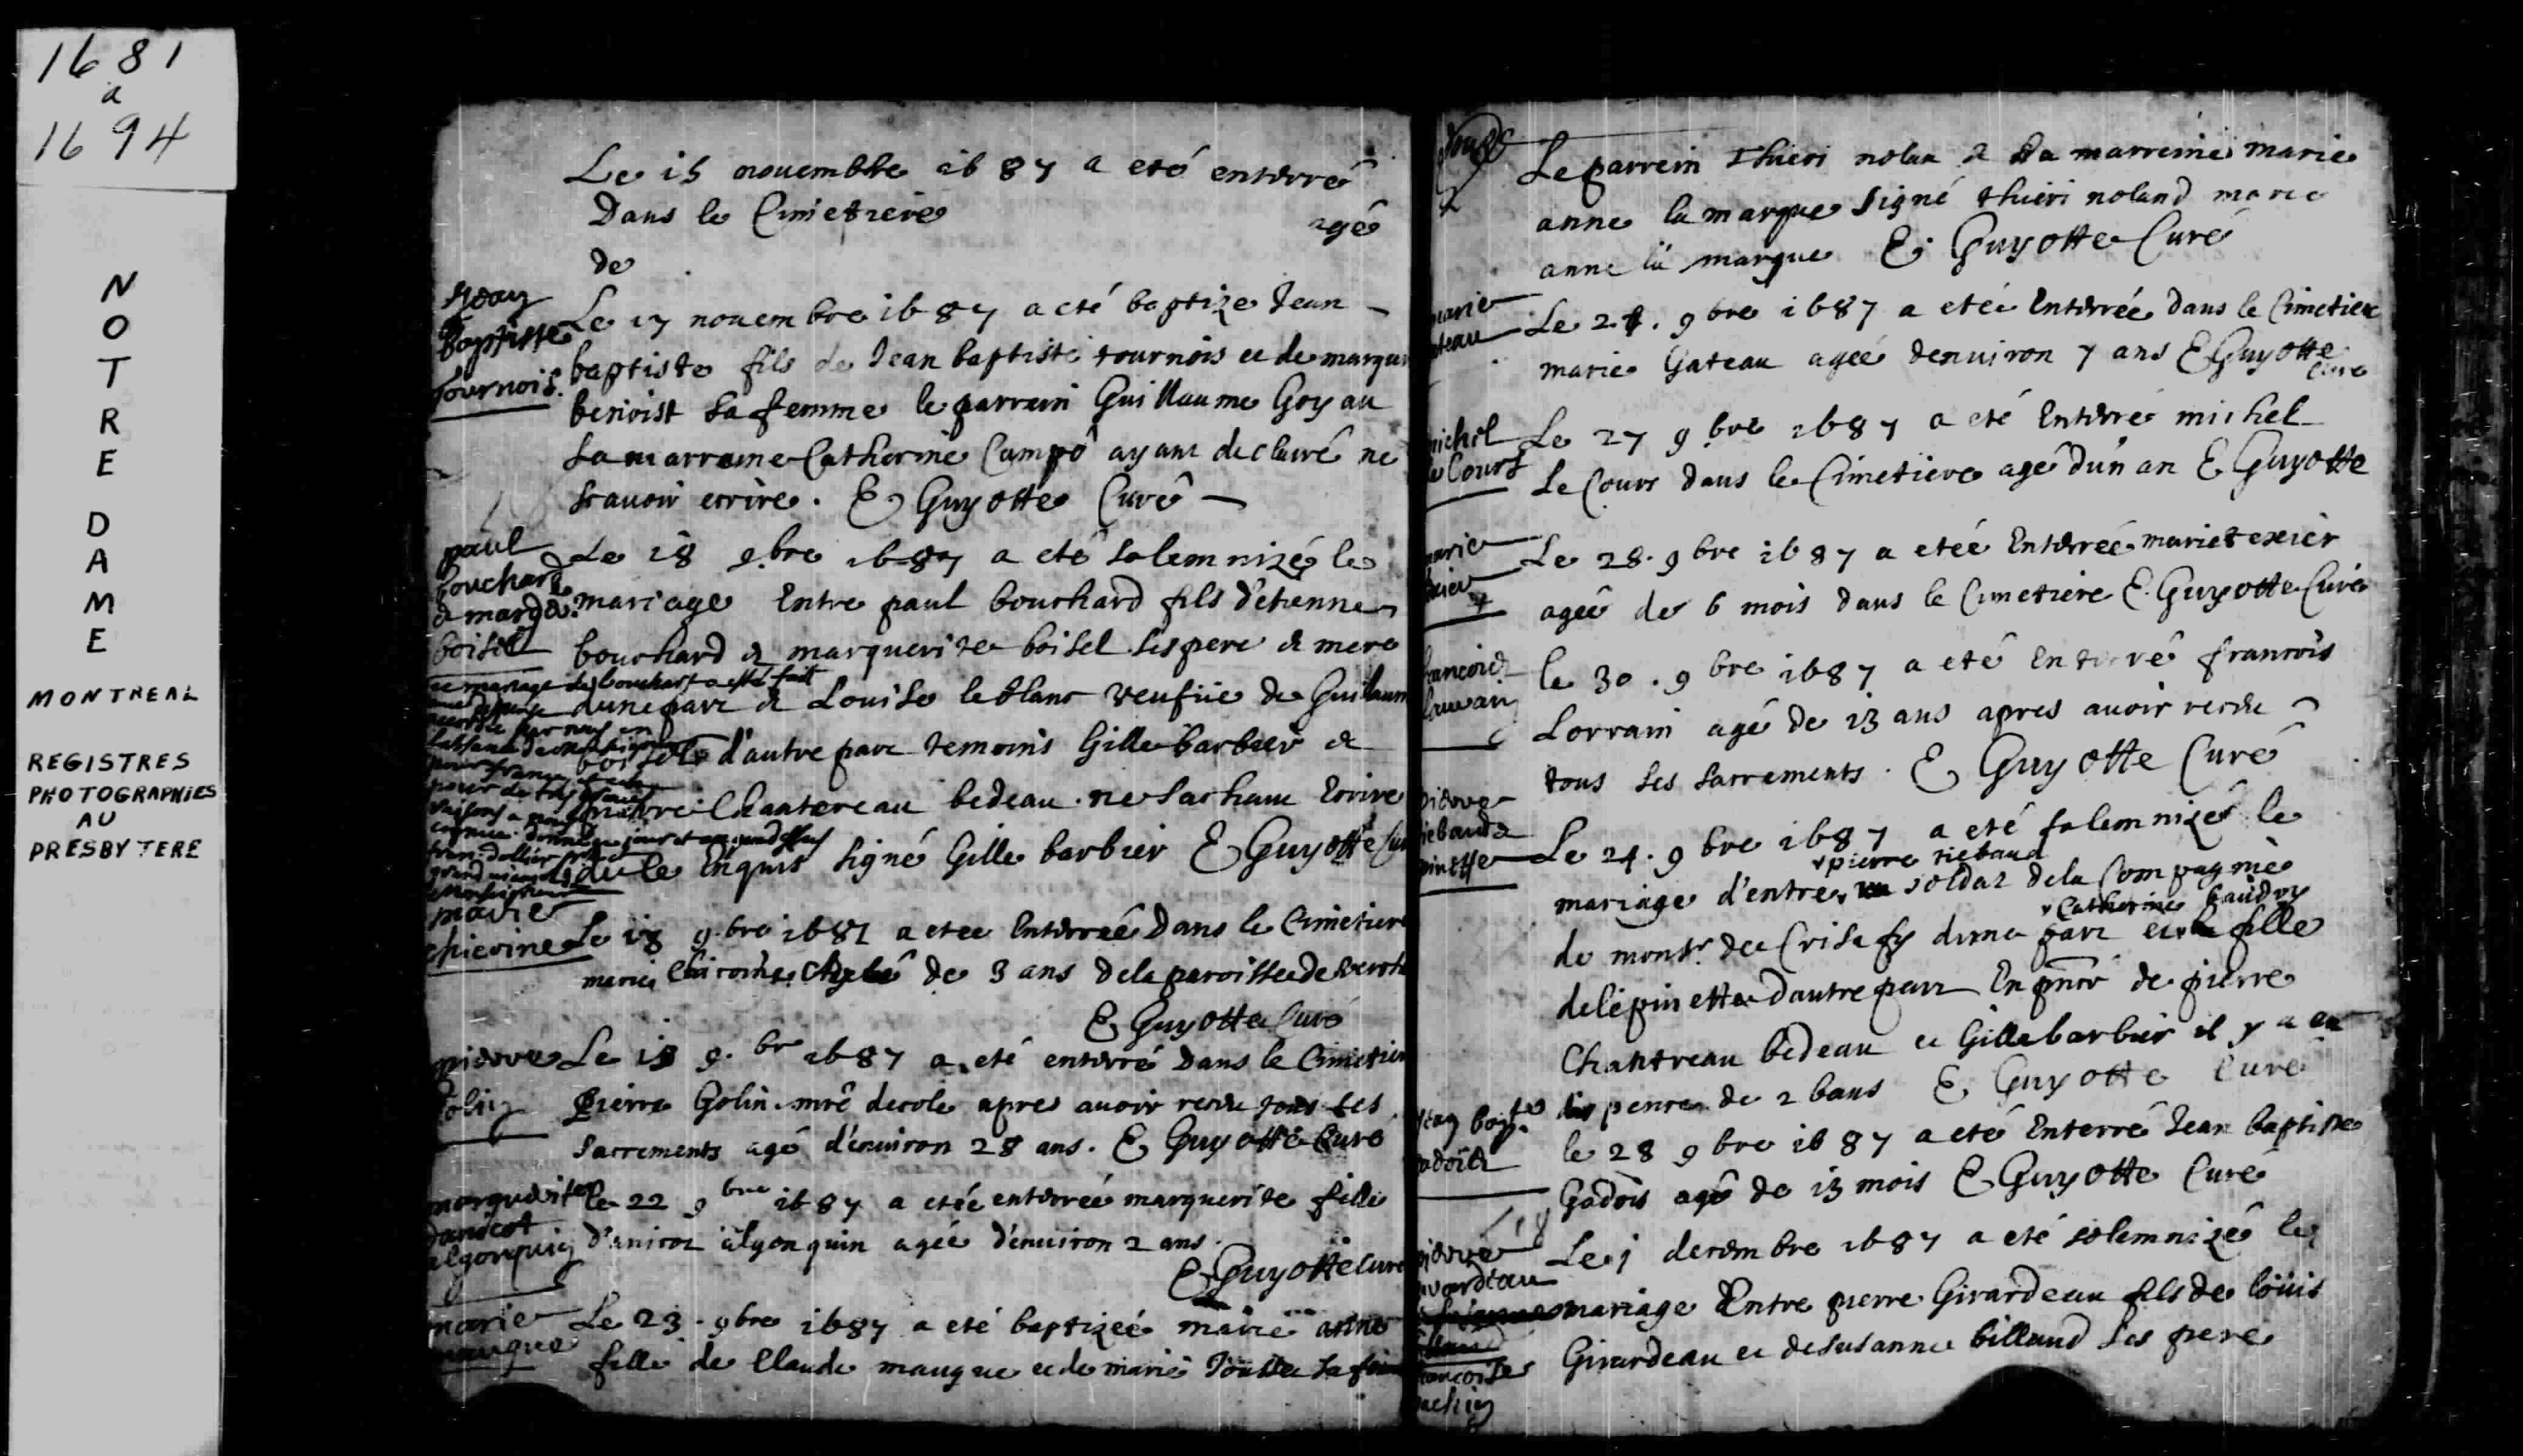 1681
a
1694
NOTRE DAME
MONTREAL
REGISTRES
PHOTOGRAPHIES
AU
PRESBYTERE
Le 15 nouembre 1687 a eté enterré
Dans le Cimetiere agé
de
Jean
Baptiste
Tournois.
Le 17 nouembre 1687 a eté baptize Jean
baptiste fils de Jean baptiste tournois et de margue
benoist sa femme le parrein Guillaume Goyau
La marreine Catherine Campo ayant declaré ne
scauoir ecrire. E Guyotte Curé
paul
bouchard
& marg.
boisel
Le 18 9.bre 1687 a eté solemnizé le
mariage Entre paul bouchard fils d'etienne
bouchard & marguerite boisel ses pere & mere
ce mariage de bouchart a esté fait
dune part & Louise le blanc veufue de Guillaum
d'autre part temoins Gille barbier &
Chantereau bedeau ne sachant Ecrire
de le Enquis signé Gille barbier E Guyotte Cur
marie
Le 18 9.bre 1687 a etee Enterreé Dans le Cimetiere
marie de 3 ans de la paroisse de
E Guyotte Curé
pierre
Le 18 9.bre 1687 a eté enterré Dans le Cimetier
Pierre Golin mré decole apres auoir recu tous ses
Sacrements agé d'enuiron 28 ans. E Guyotte Curé
marguerite
algonquin
le 22 9bre 1687 a etée enterreé marguerite fille
algonquin agée d'enuiron 2 ans.
E Guyotte Curé
marie
mauque
Le 23. 9bre 1687 a eté baptizeé marie anne
fille de Claude mauque et de marie Jousset sa fem
Le parrein Thieri nolan & La marreine marie
anne la marque signé thieri noland marie
anne la marque E. Guyotte Curé
marie
teau
Le 24. 9bre 1687 a etée Enterrée dans le Cimetiere
marie Gateau ageé denuiron 7 ans E Guyotte
Curé
michel
le Court
Le 27 9bre 1687 a eté Enterré michel
Le Cour dans le Cimetiere agé d'un an E Guyotte
marie
Le 28. 9bre 1687 a eteé Enterreé marie texier
ageé de 6 mois dans le Cimetiere E. Guyotte Curé
francois
le 30. 9bre 1687 a eté Enterré francois
Lorrain agé de 13 ans apres auoir recu
tous ses sacrements. E Guyotte Curé
pierre
Le 24. 9bre 1687 a eté solemnizé le
pierre riebaud
mariage d'entre soldat dela Compagnie
Catherine baudry
de monsr. de Crisafy dune part et la fille
delepinette dautre part En de pierre
Chantreau bedeau et Gille barbier il y a eu
dispence de 2 bans E Guyotte Curé
Jean bapte
le 28 9bre 1687 a eté Enterré Jean baptiste
Gadois agé de 13 mois E Guyotte Curé
pierre
Le 1 decembre 1687 a eté solemnizé le
mariage Entre pierre Girardeau fils de loüis
Girardeau et de susanne billaud ses pere